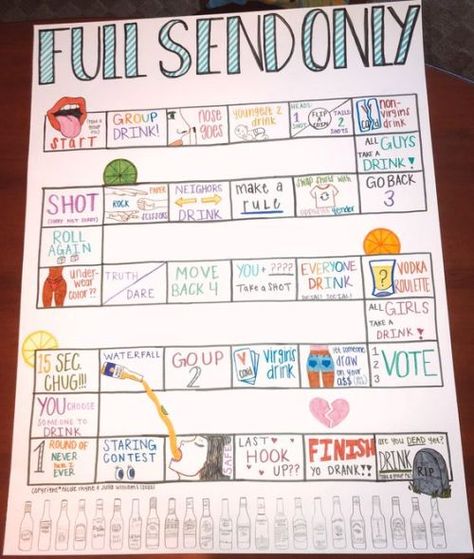 FULL SEND ONLY
START
GROUP DRINK!
nose goes
youngest 2 drink
HEADS: 1 SHOT
FLIP A COIN
TAILS 2 SHOTS
non-virgins drink
ALL GUYS TAKE A DRINK!
GO BACK 3
swap shirts with opposite gender
make a RULE
NEIGHBORS DRINK
ROCK PAPER SCISSORS
SHOT
ROLL AGAIN
underwear color??
TRUTH DARE
MOVE BACK 4
YOU + ????
TAKE A SHOT
EVERYONE DRINK
SOCIAL! SOCIAL!
VODKA ROULETTE
ALL GIRLS TAKE A DRINK!
1 2 3 VOTE
let someone draw on your a$$
virgins drink
GO UP 2
WATERFALL
15 SEC. CHUG!!!
YOU CHOOSE SOMEONE TO DRINK
1 ROUND OF NEVER have I EVER
STARING CONTEST
SAFE
LAST HOOK UP??
FINISH YO DRANK!!
are you DEAD yet?
DRINK
RIP